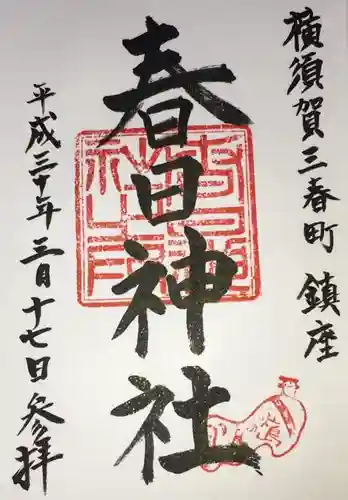 横須賀三春町 鎮座
春日神社
平成三十年三月十七日参拝